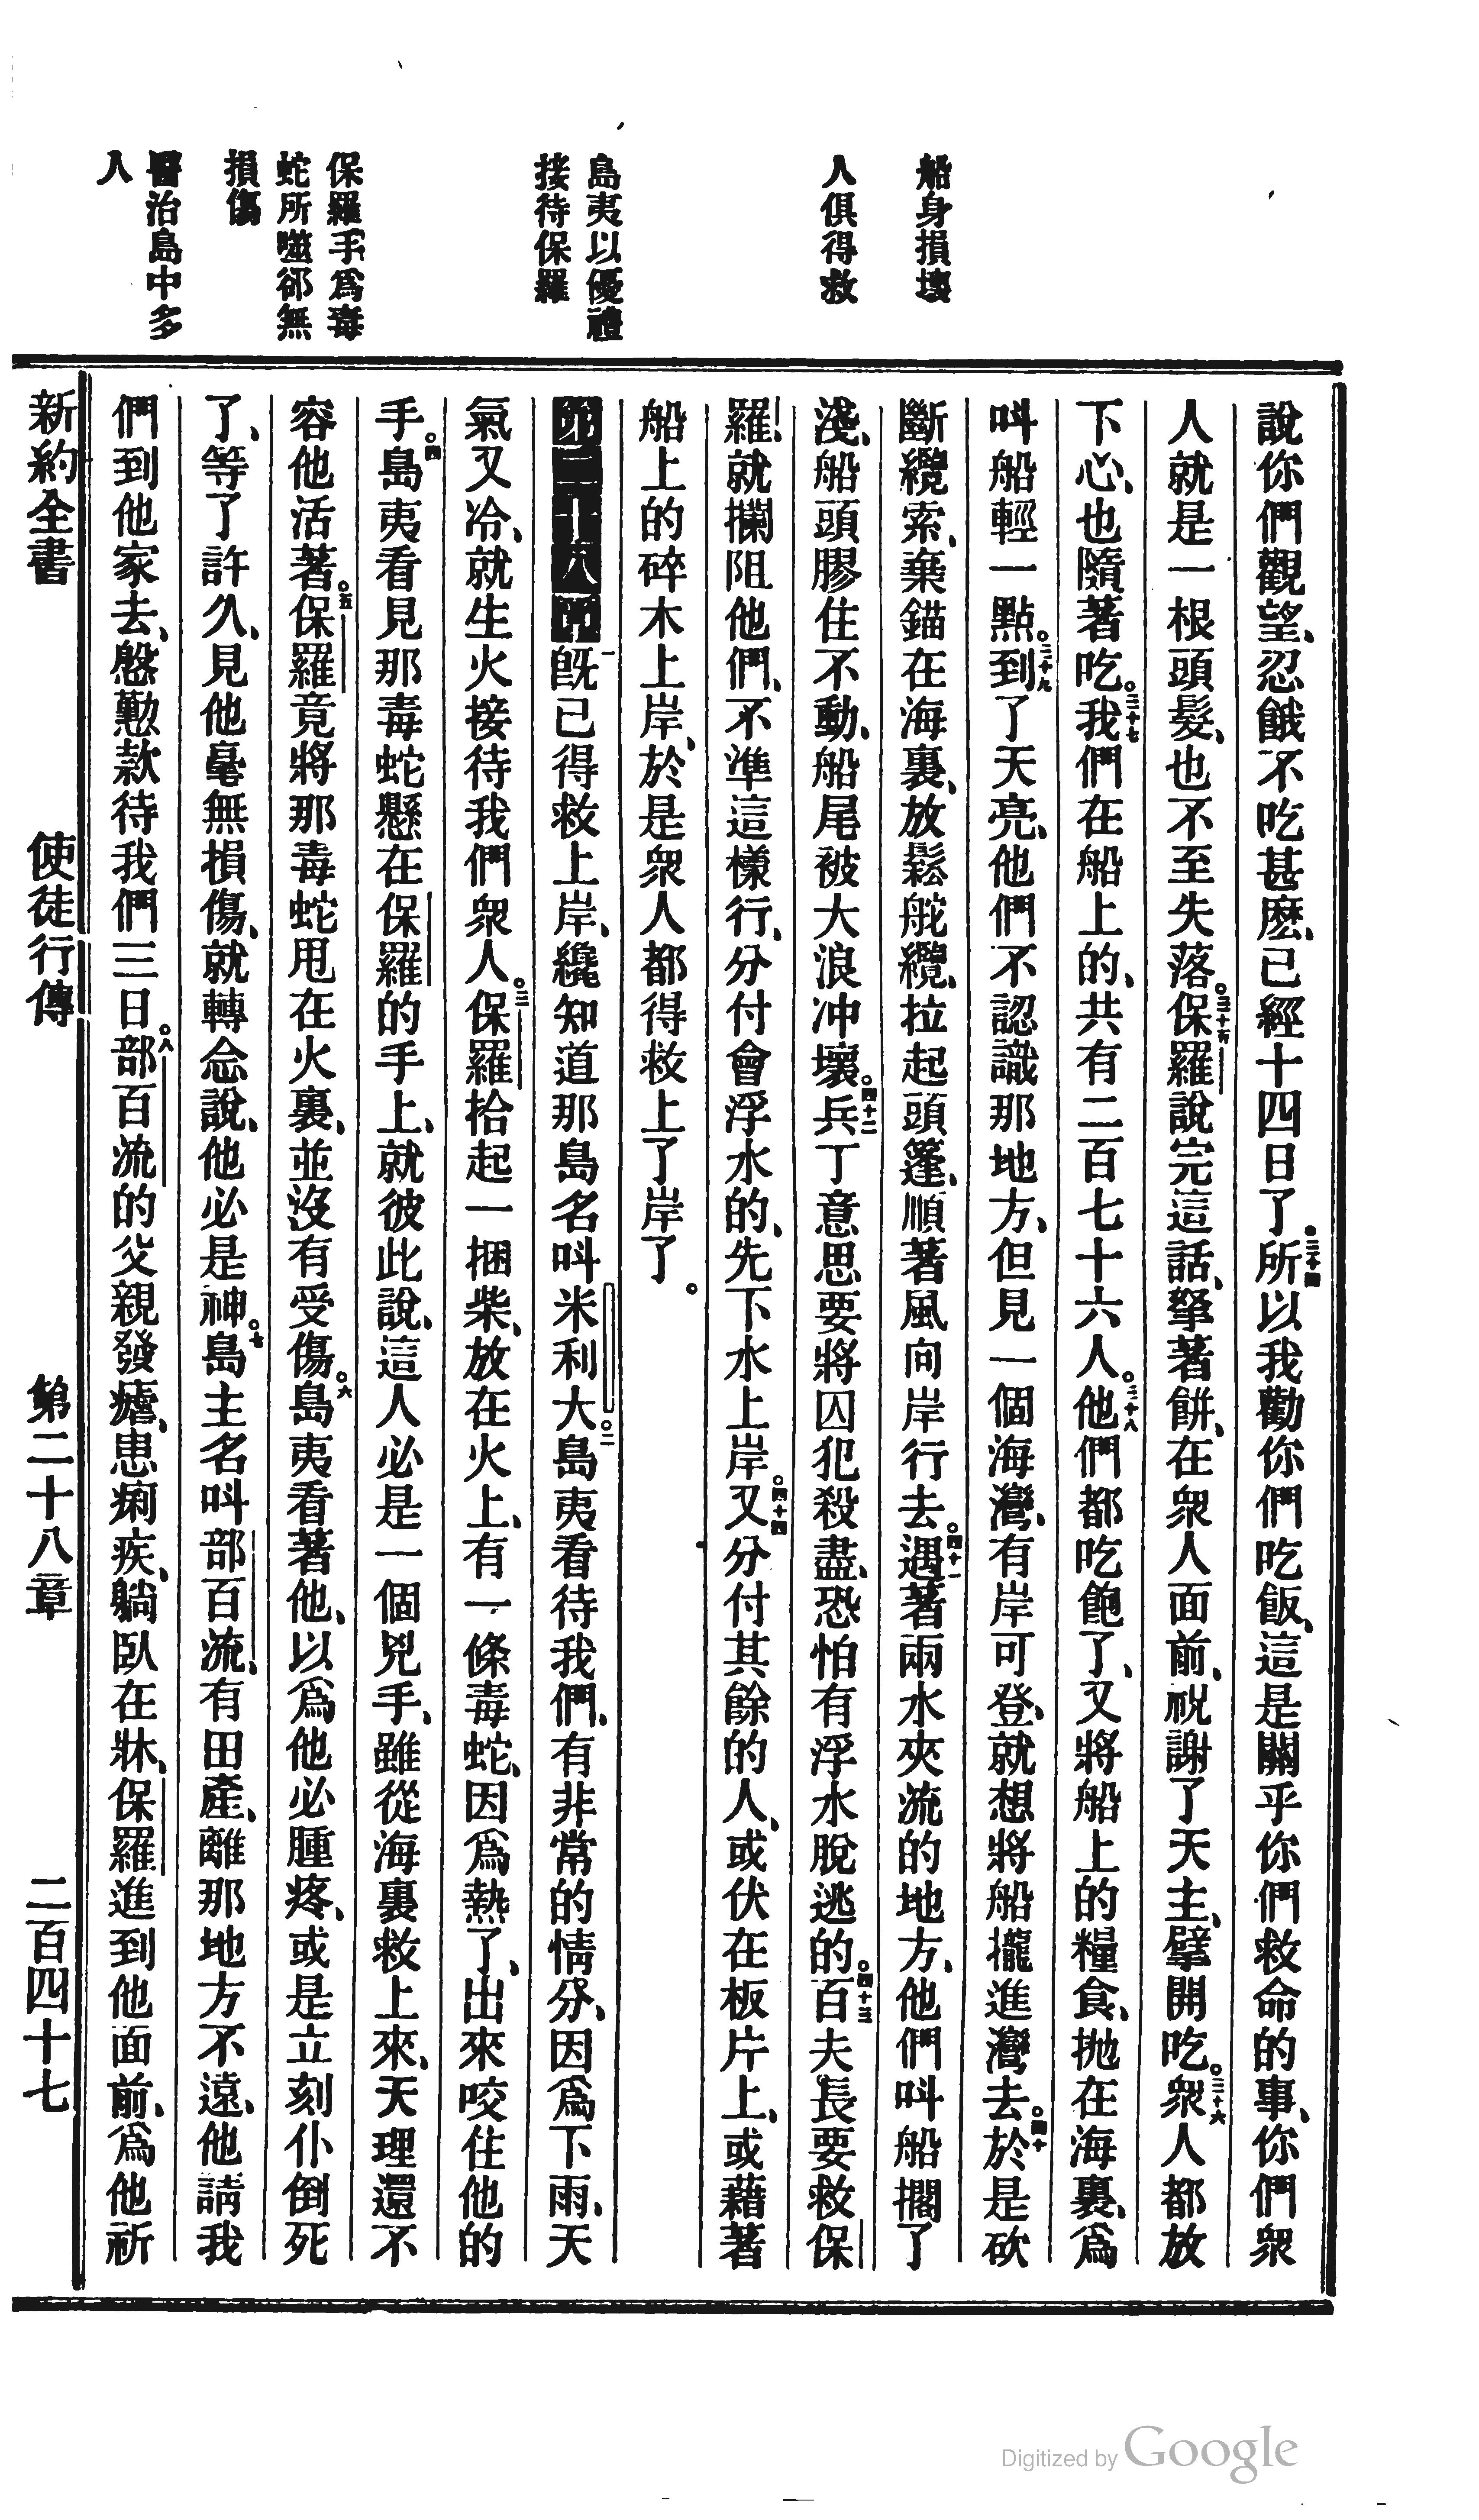 船身損壞
人俱得救
島夷以優禮
接待保羅
保羅手爲毒
蛇所噬卻無
損傷
醫治島中多
人
說你們觀望、忍餓不吃甚麽、已經十四日了。三十四所以我勸你們吃飯、這是關乎你們救命的事、你們衆
人就是一根頭髮、也不至失落。三十五保羅說完這話、擎著餅、在衆人面前、祝謝了天主、擘開吃。三十六衆人都放
下心、也隨著吃。三十七我們在船上的、共有二百七十六人。三十八他們都吃飽了、又將船上的糧食、抛在海裏、爲
叫船輕一點。三十九到了天亮、他們不認識那地方、但見一個海灣、有岸可登、就想將船攏進灣去。四十於是砍
斷纜索、棄錨在海裏、放鬆舵纜、拉起頭篷、順著風向岸行去。四十一遇著兩水夾流的地方、他們叫船擱了
淺、船頭膠住不動、船尾被大浪冲壞。四十二兵丁意思要將囚犯殺盡、恐怕有浮水脫逃的。四十三百夫長要救保
羅、就攔阻他們、不準這樣行、分付會浮水的、先下水上岸。四十四又分付其餘的人、或伏在板片上、或藉著
船上的碎木上岸、於是衆人都得救上了岸了。
第二十八章一既已得救上岸、纔知道那島名叫米利大。二島夷看待我們、有非常的情分、因爲下雨、天
氣又冷、就生火接待我們衆人。三保羅拾起一捆柴、放在火上、有一條毒蛇、因爲熱了、出來咬住他的
手。四島夷看見那毒蛇懸在保羅的手上、就彼此說、這人必是一個兇手、雖從海裏救上來、天理還不
容他活著。五保羅竟將那毒蛇甩在火裏、並沒有受傷。六島夷看著他、以爲他必腫疼、或是立刻仆倒死
了、等了許久、見他毫無損傷、就轉念說、他必是神。七島主名叫部百流、有田產、離那地方不遠、他請我
們到他家去、慇懃款待我們三日。八部百流的父親發瘧、患痢疾、躺臥在牀、保羅進到他面前、爲他祈
新約全書　使徒行傳　第二十八章　二百四十七
Digitized by Google